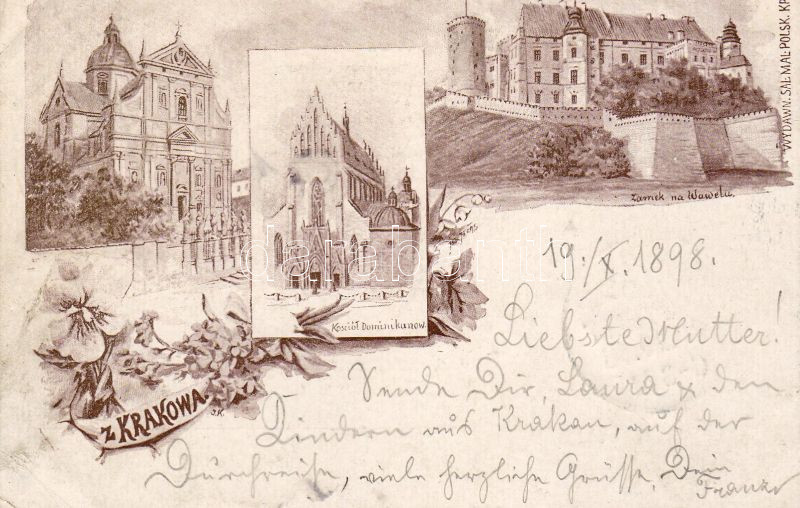 WYDAWN. SAL. MAL. POLSK. KR
Zamek na Wawelu.
Kościół Dominikanow.
Z KRAKOWA.
J.K.
19./X. 1898.
Liebste Mutter!
Sende Dir, Laura & den
Kindern aus Krakau, auf der
Durchreise, viele herzliche Grüsse. Dein
Franz
darabanth